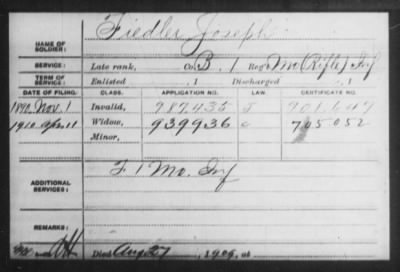 Fiedler Joseph
NAME OF SOLDIER:
SERVICE: Late rank, Co. B. 1 Reg't Mo (Rifle) Inf
TERM OF SERVICE: Enlisted , 1 Discharged , 1
DATE OF FILING. CLASS. APPLICATION NO. LAW. CERTIFICATE NO.
1890 Nov. 1 Invalid, 987435 J 901647
1910 Apr 11 Widow, 939936 c 705052
Minor,
ADDITIONAL SERVICES: F 1 Mo. Inf
REMARKS:
Died Aug 27, 1909, at